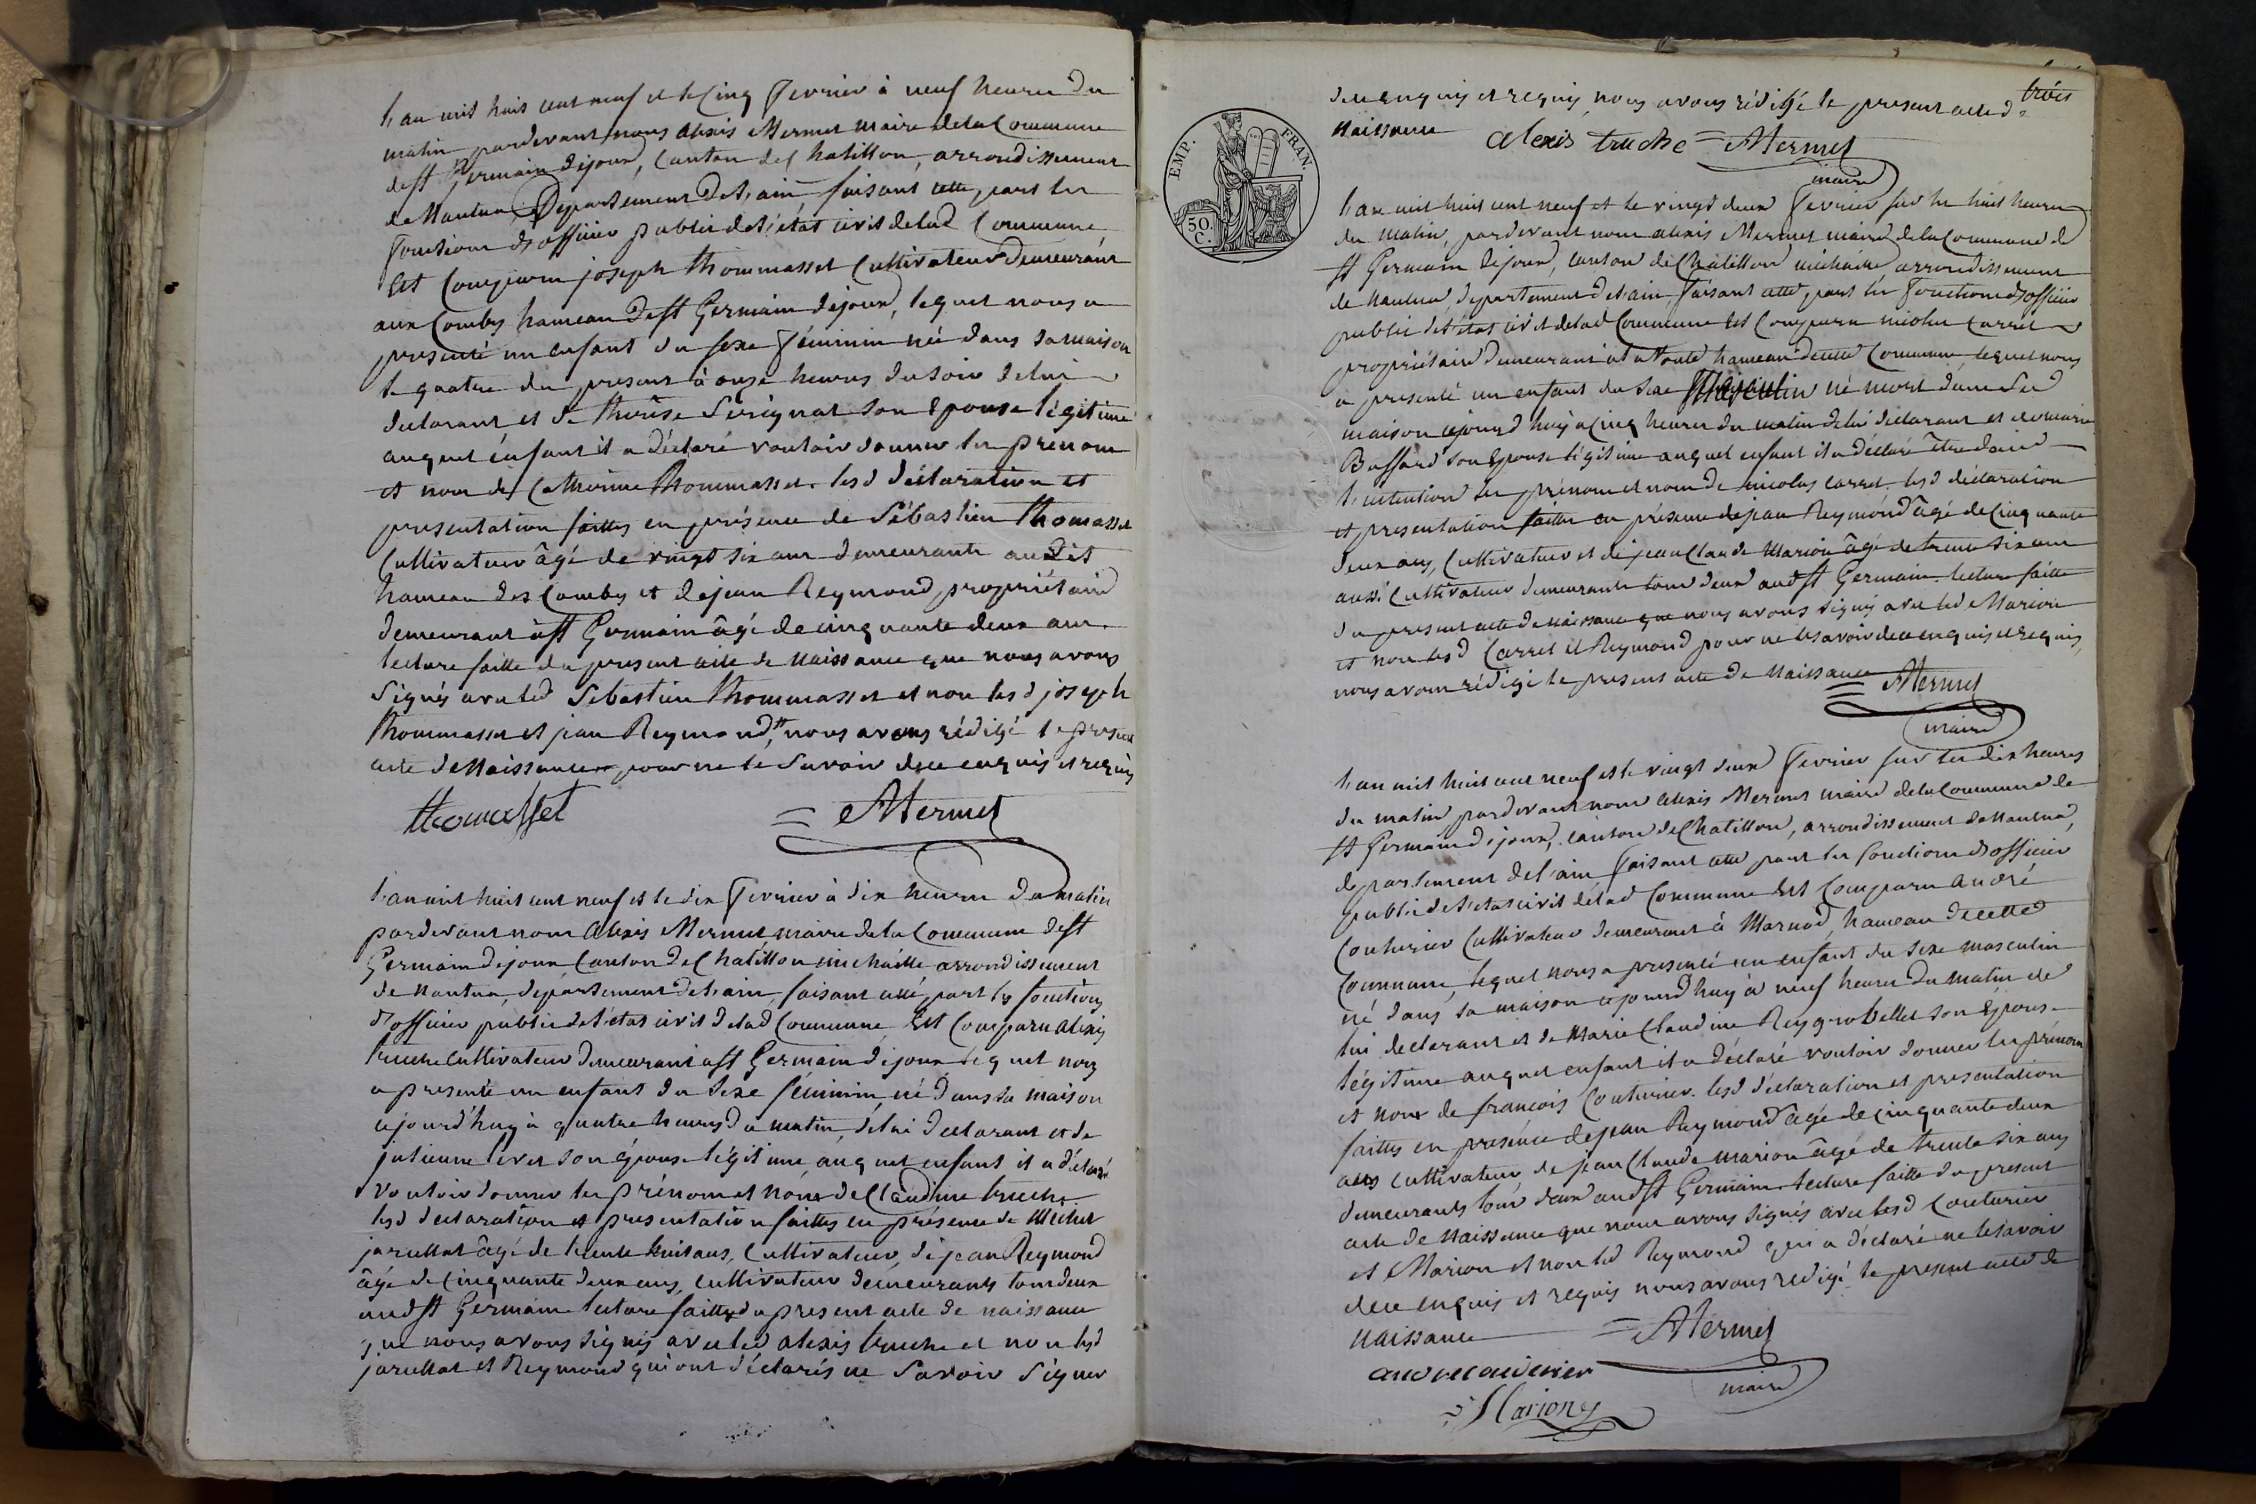 L'an mil huit cent neuf et le Cinq fevrier à neuf heures du
matin pardevant nous Alexis Mermet maire de la Commune
de st Germain dejoux, Canton de Chatillon, arrondissement
de Nantua, Département de l'ain, faisant cette part les
fonctions d'officier public de l'état civil de lad Commune
Est Comparu joseph thommasset Cultivateur Demeurant
aux Combes hameau de st Germain dejoux, lequel nous a
presenté un enfant du sexe féminin né dans sa maison
le quatre du present à onze heures du soir de lui
declarant et de therèse Serignat son Epouse légitime
auquel enfant il a déclaré vouloir donner les prénom
et nom de Catherine thommasset. lesd déclaration et
presentation faittes en présence de Sébastien thomasset
Cultivateur âgé de vingt six ans demeurante audit
hameau des Combes et dejean Reymond, propriétaire
demeurant à st Germain âgé de cinquante deux ans.
lecture faitte du present acte de naissance que nous avons
Signés avec led Sebastien thommasset et non lesd joseph
thommasset et jean Reymond, nous avons rédigé le present
acte de Naissance pour ne le Savoir dece enquis et requis
thomasset = AMermet
L'an mil huit cent neuf et le dix fevrier à dix heures du matin
pardevant nous Alexis Mermet maire de la Commune de st
Germain dejoux Canton de Chatillon michaille arrondissement
de Nantua, département de l'ain, faisant cette part les fonctions
d'officier public de l'état civil de lad Commune Est Comparu Alexis
truche Cultivateur demeurant à st Germain dejoux lequel nous
a presenté un enfant du Sexe féminin, né dans sa maison
cejourd'huy à quatre heures du matin, de lui declarant et de
julienne son épouse légitime, auquel enfant il a déclaré
vouloir donner les prénom et nom de Claudine truche
lesd declaration et presentation faittes en présence de Michel
jarullat âgé de trente huit ans, Cultivateur, dejean Reymond
âgé de Cinquante deux ans, Cultivateur demeurants tous deux
aud st Germain. lecture faitte du present acte de naissance
que nous avons signés avec led alexis truche et non lesd
jarullat et Reymond qui ont déclarés ne Savoir Signer
trois
dece enquis et requis, nous avons rédigé le present acte de
Naissance Alexis truche = AMermet
maire
EMP. FRAN.
50.
C.
L'an mil huit cent neuf et le vingt deux fevrier sur les huit heures
du matin, pardevant nous alexis Mermet maire de la Commune de
st Germain dejoux, canton de Chatillon michaille, arrondissement
de Nantua, departement de l'ain, faisant cette part les fonctions d'officier
public de l'état civil de lad Commune Est Comparu nicolas Carrel
propriétaire demeurant hameau de cette Commune lequel nous
a presenté un enfant du sexe Masculin né mort dans sad
maison cejourd'huy à Cinq heures du matin de lui declarant et de marie
Buffard son Epouse légitime auquel enfant il a déclaré être dans
l'intention les prénom et nom de nicolas Carrel. lesd déclaration
et presentation faittes en présence dejean Reymond âgé de Cinquante
deux ans, Cultivateur et dejean Claude Marion âgé de trente six ans
aussi Cultivateur demeurants tous deux aud st Germain. lecture faitte
du present acte de Naissance que nous avons signés avec led Marion
et non lesd Carrel et Reymond pour ne le savoir dece enquis et requis,
nous avons rédigé le present acte de Naissance = AMermet
maire
L'an mil huit cent neuf et le vingt deux fevrier sur les dix heures
du matin pardevant nous Alexis Mermet maire de la Commune de
st Germain dejoux, canton de Chatillon, arrondissement de Nantua,
departement de l'ain faisant cette part les fonctions d'officier
public de l'état civil de lad Commune Est Comparu André
Couturier Cultivateur demeurant à Marnod, hameau de cette
Commune, lequel nous a presenté un enfant du sexe masculin
né dans sa maison cejourd'huy à neuf heures du matin de
lui declarant et de Marie Claudine Reygrobellet son Epouse
légitime auquel enfant il a déclaré vouloir donner les prénom
et nom de françois Couturier. lesd déclaration et presentation
faittes en présence dejean Reymond âgé de cinquante deux
ans cultivateur, de jean Claude Marion âgé de trente six ans
demeurants tous deux aud st Germain. lecture faitte du present
acte de Naissance que nous avons signés avec lesd Couturier
et Marion et non led Reymond qui a déclaré ne le savoir
dece enquis et requis nous avons redigé le present acte de
Naissance = AMermet
maire
andre couturier
Marion